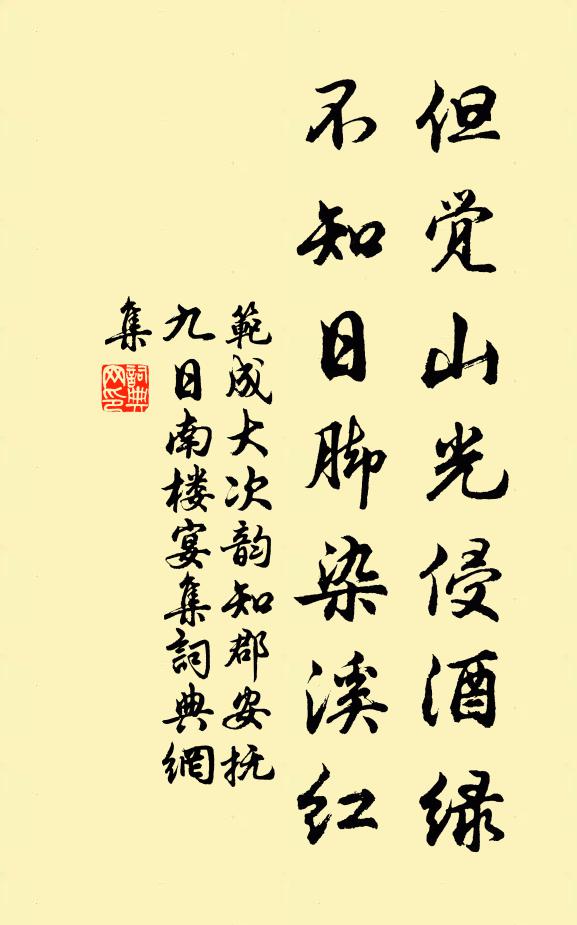 但觉山光侵酒绿
不知日脚染溪红
範成大次韵知郡安抚
九日南楼宴集詞典網
集
詞典
网印